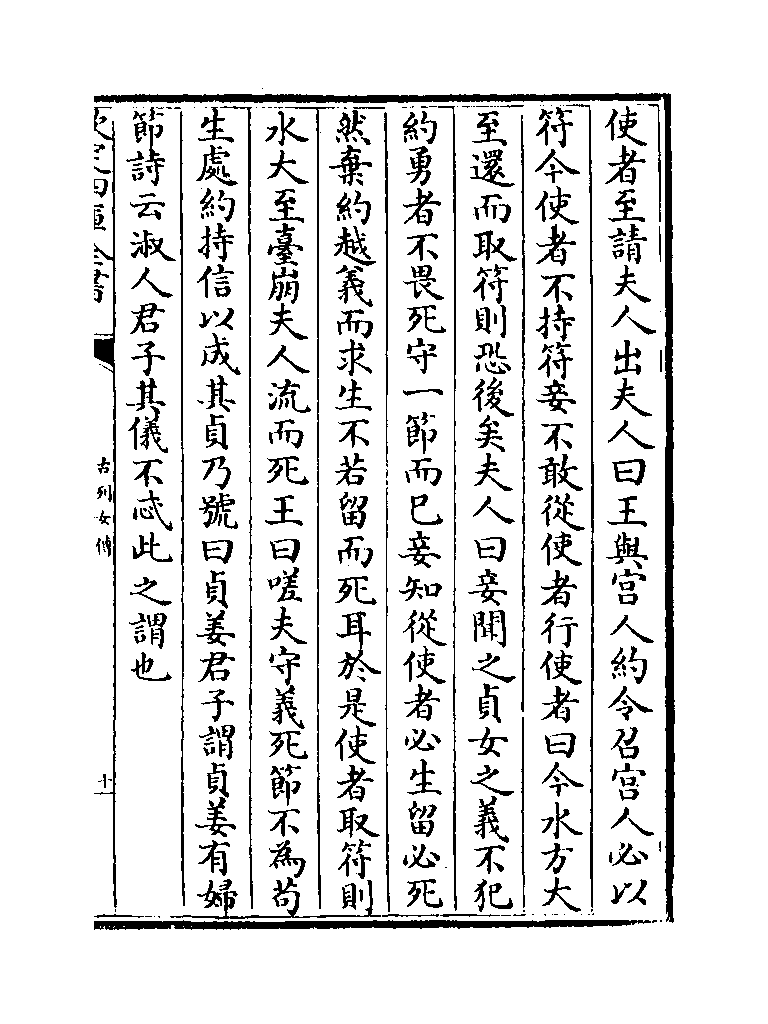 使者至請夫人出夫人曰王與宫人約令召宫人必以
符今使者不持符妾不敢從使者行使者曰今水方大
至還而取符則恐後矣夫人曰妾聞之貞女之義不犯
約勇者不畏死守一節而已妾知從使者必生留必死
然棄約越義而求生不若留而死耳於是使者取符則
水大至臺崩夫人流而死王曰嗟夫守義死節不為苟
生處約持信以成其貞乃號曰貞姜君子謂貞姜有婦
節詩云淑人君子其儀不忒此之謂也
欽定四庫全書
古列女傳
十一